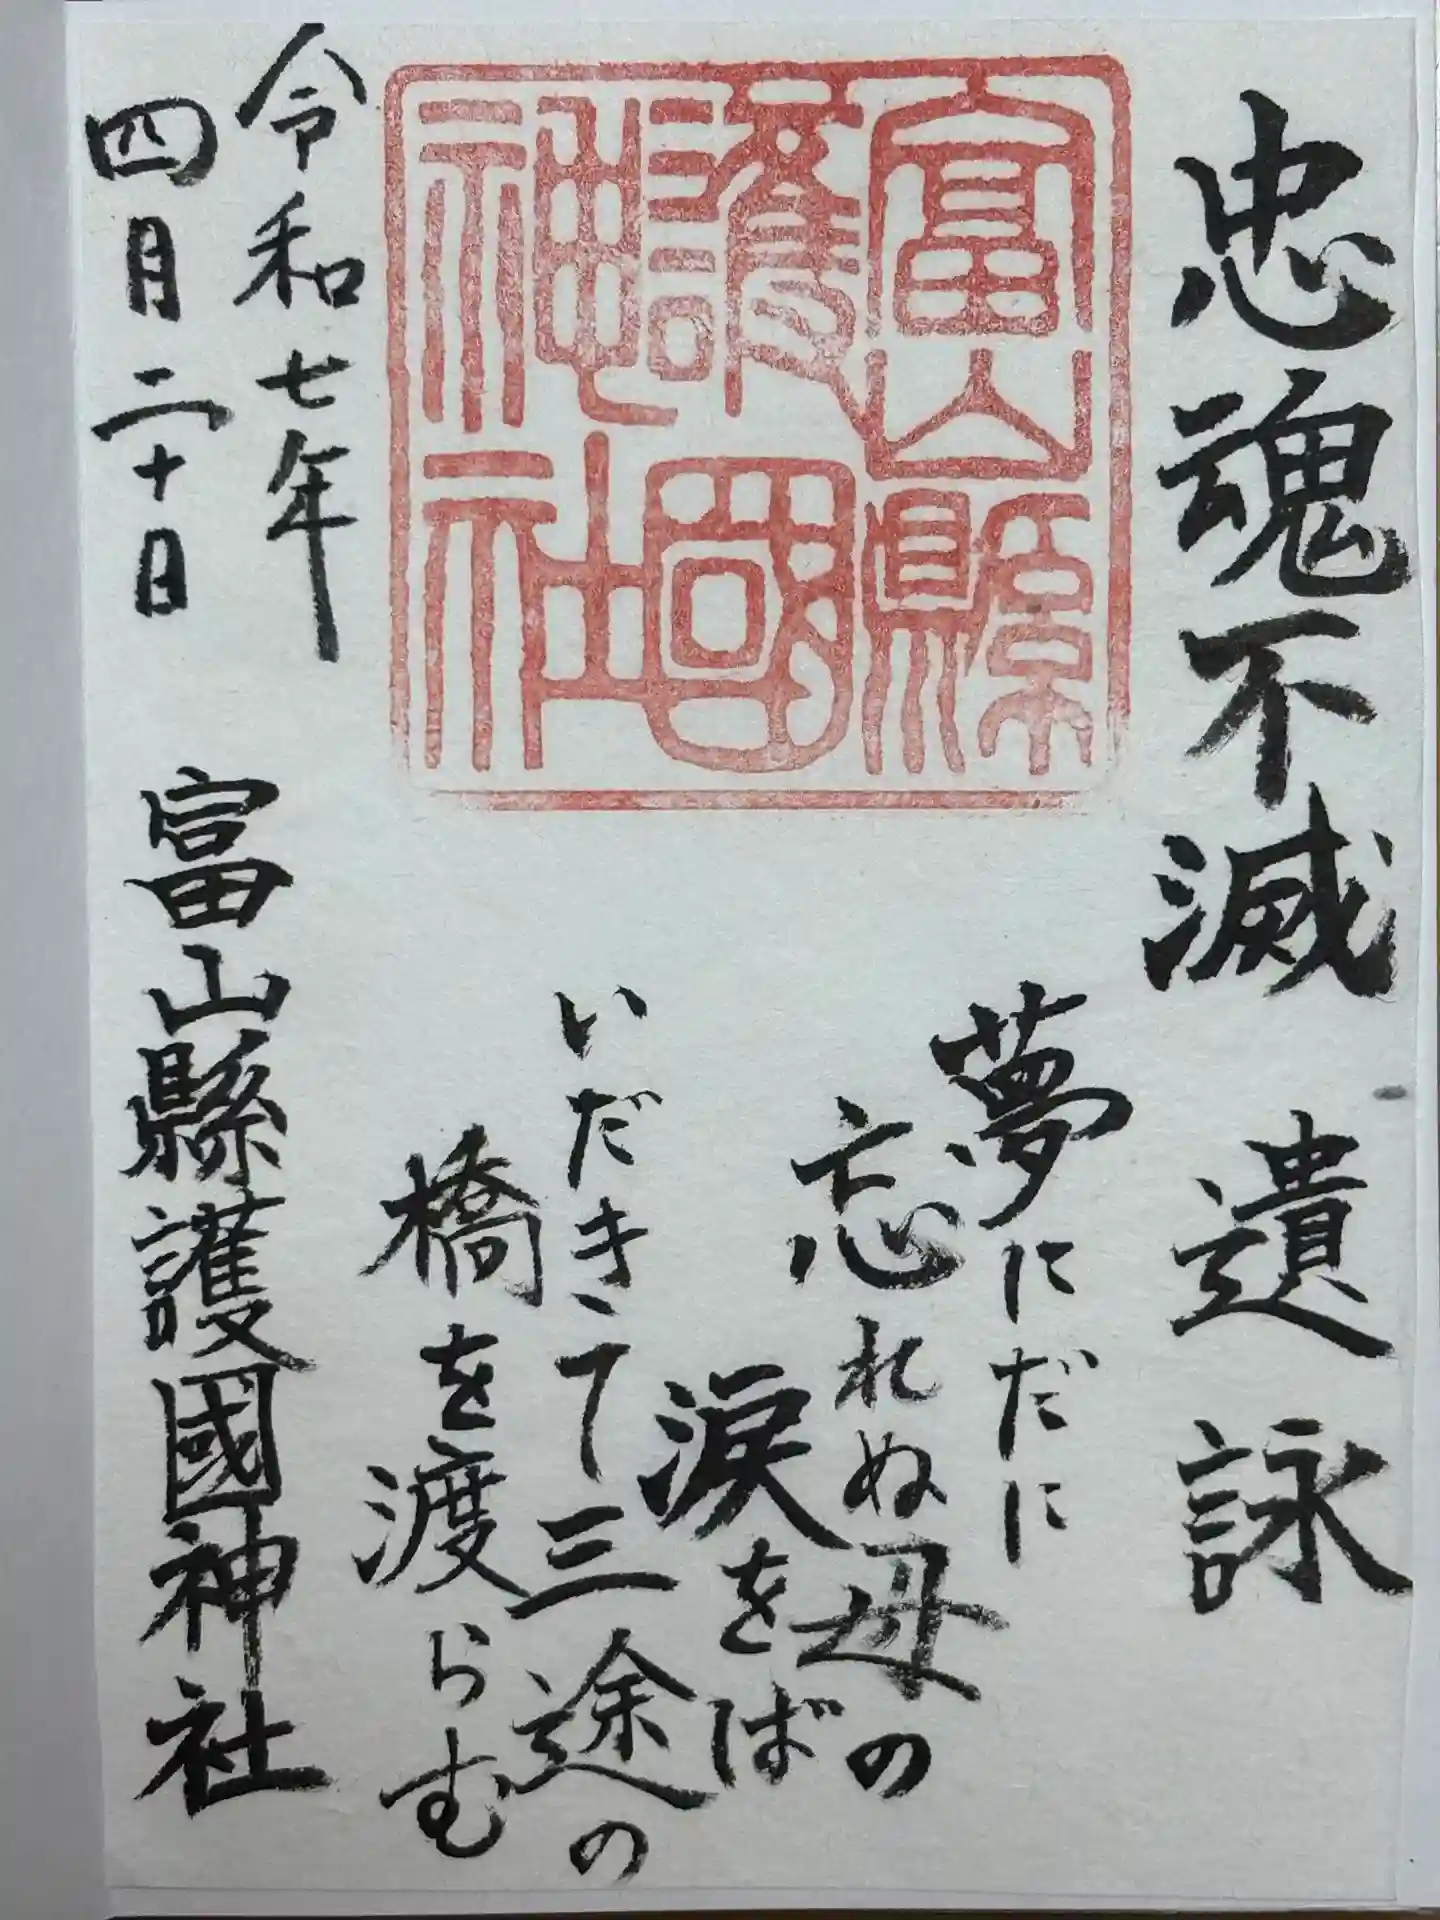 忠魂不滅 遺詠
夢にだに
忘れぬ母の
涙をば
いだきて三途の
橋を渡らむ
富山縣
護國
神社
令和七年
四月二十日
富山縣護國神社